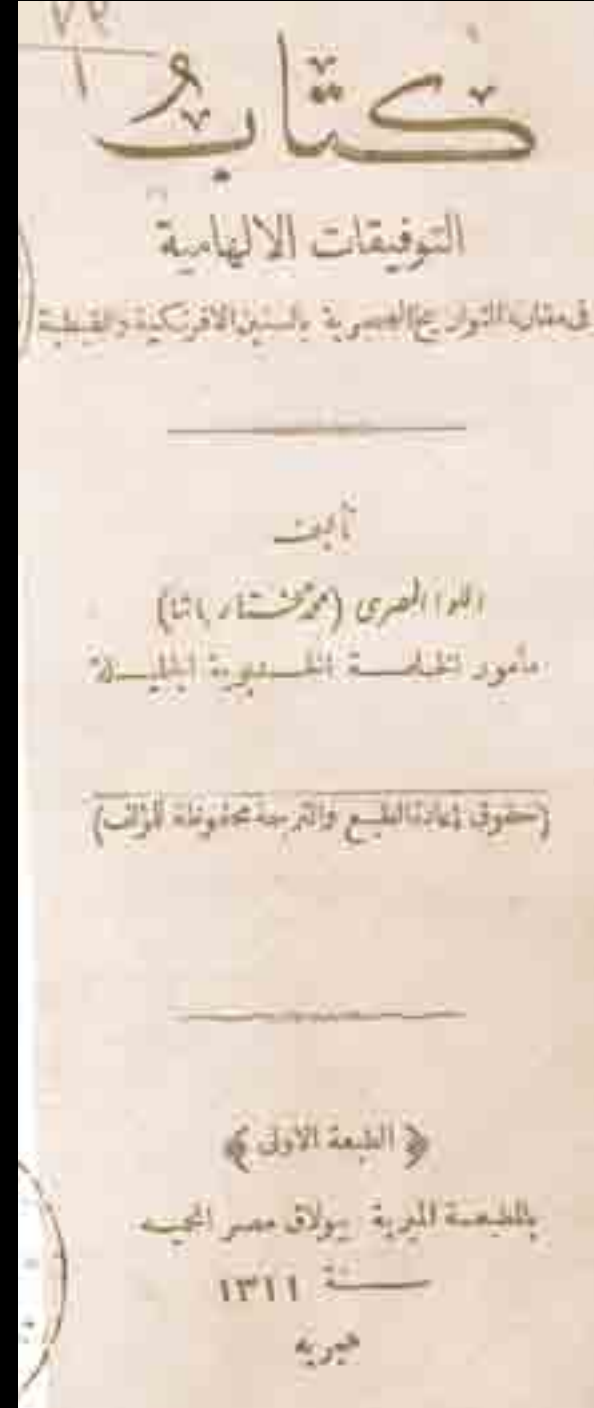 ٧٢
١
كتابُ
التوفيقات الالهامية
فى مقارنة التواريخ الهجرية بالسنين الافرنكية والقبطية
تأليف
اللوا المصرى (محمد مختار باشا)
مأمور الخاصة الخديوية الجليلة
(حقوق إعادة الطبع والترجمة محفوظة للمؤلف)
﴿ الطبعة الاولى ﴾
بالمطبعة الميرية ببولاق مصر المحميه
سنة ١٣١١
هجريه